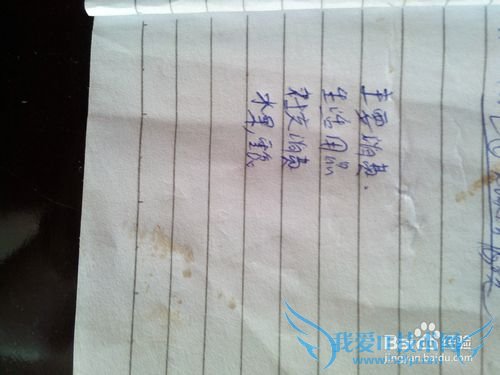 主要消费.
生活用品
社交消费
水果,零食
我爱IT技术网
Baidu经验
jingjian.baidu.com